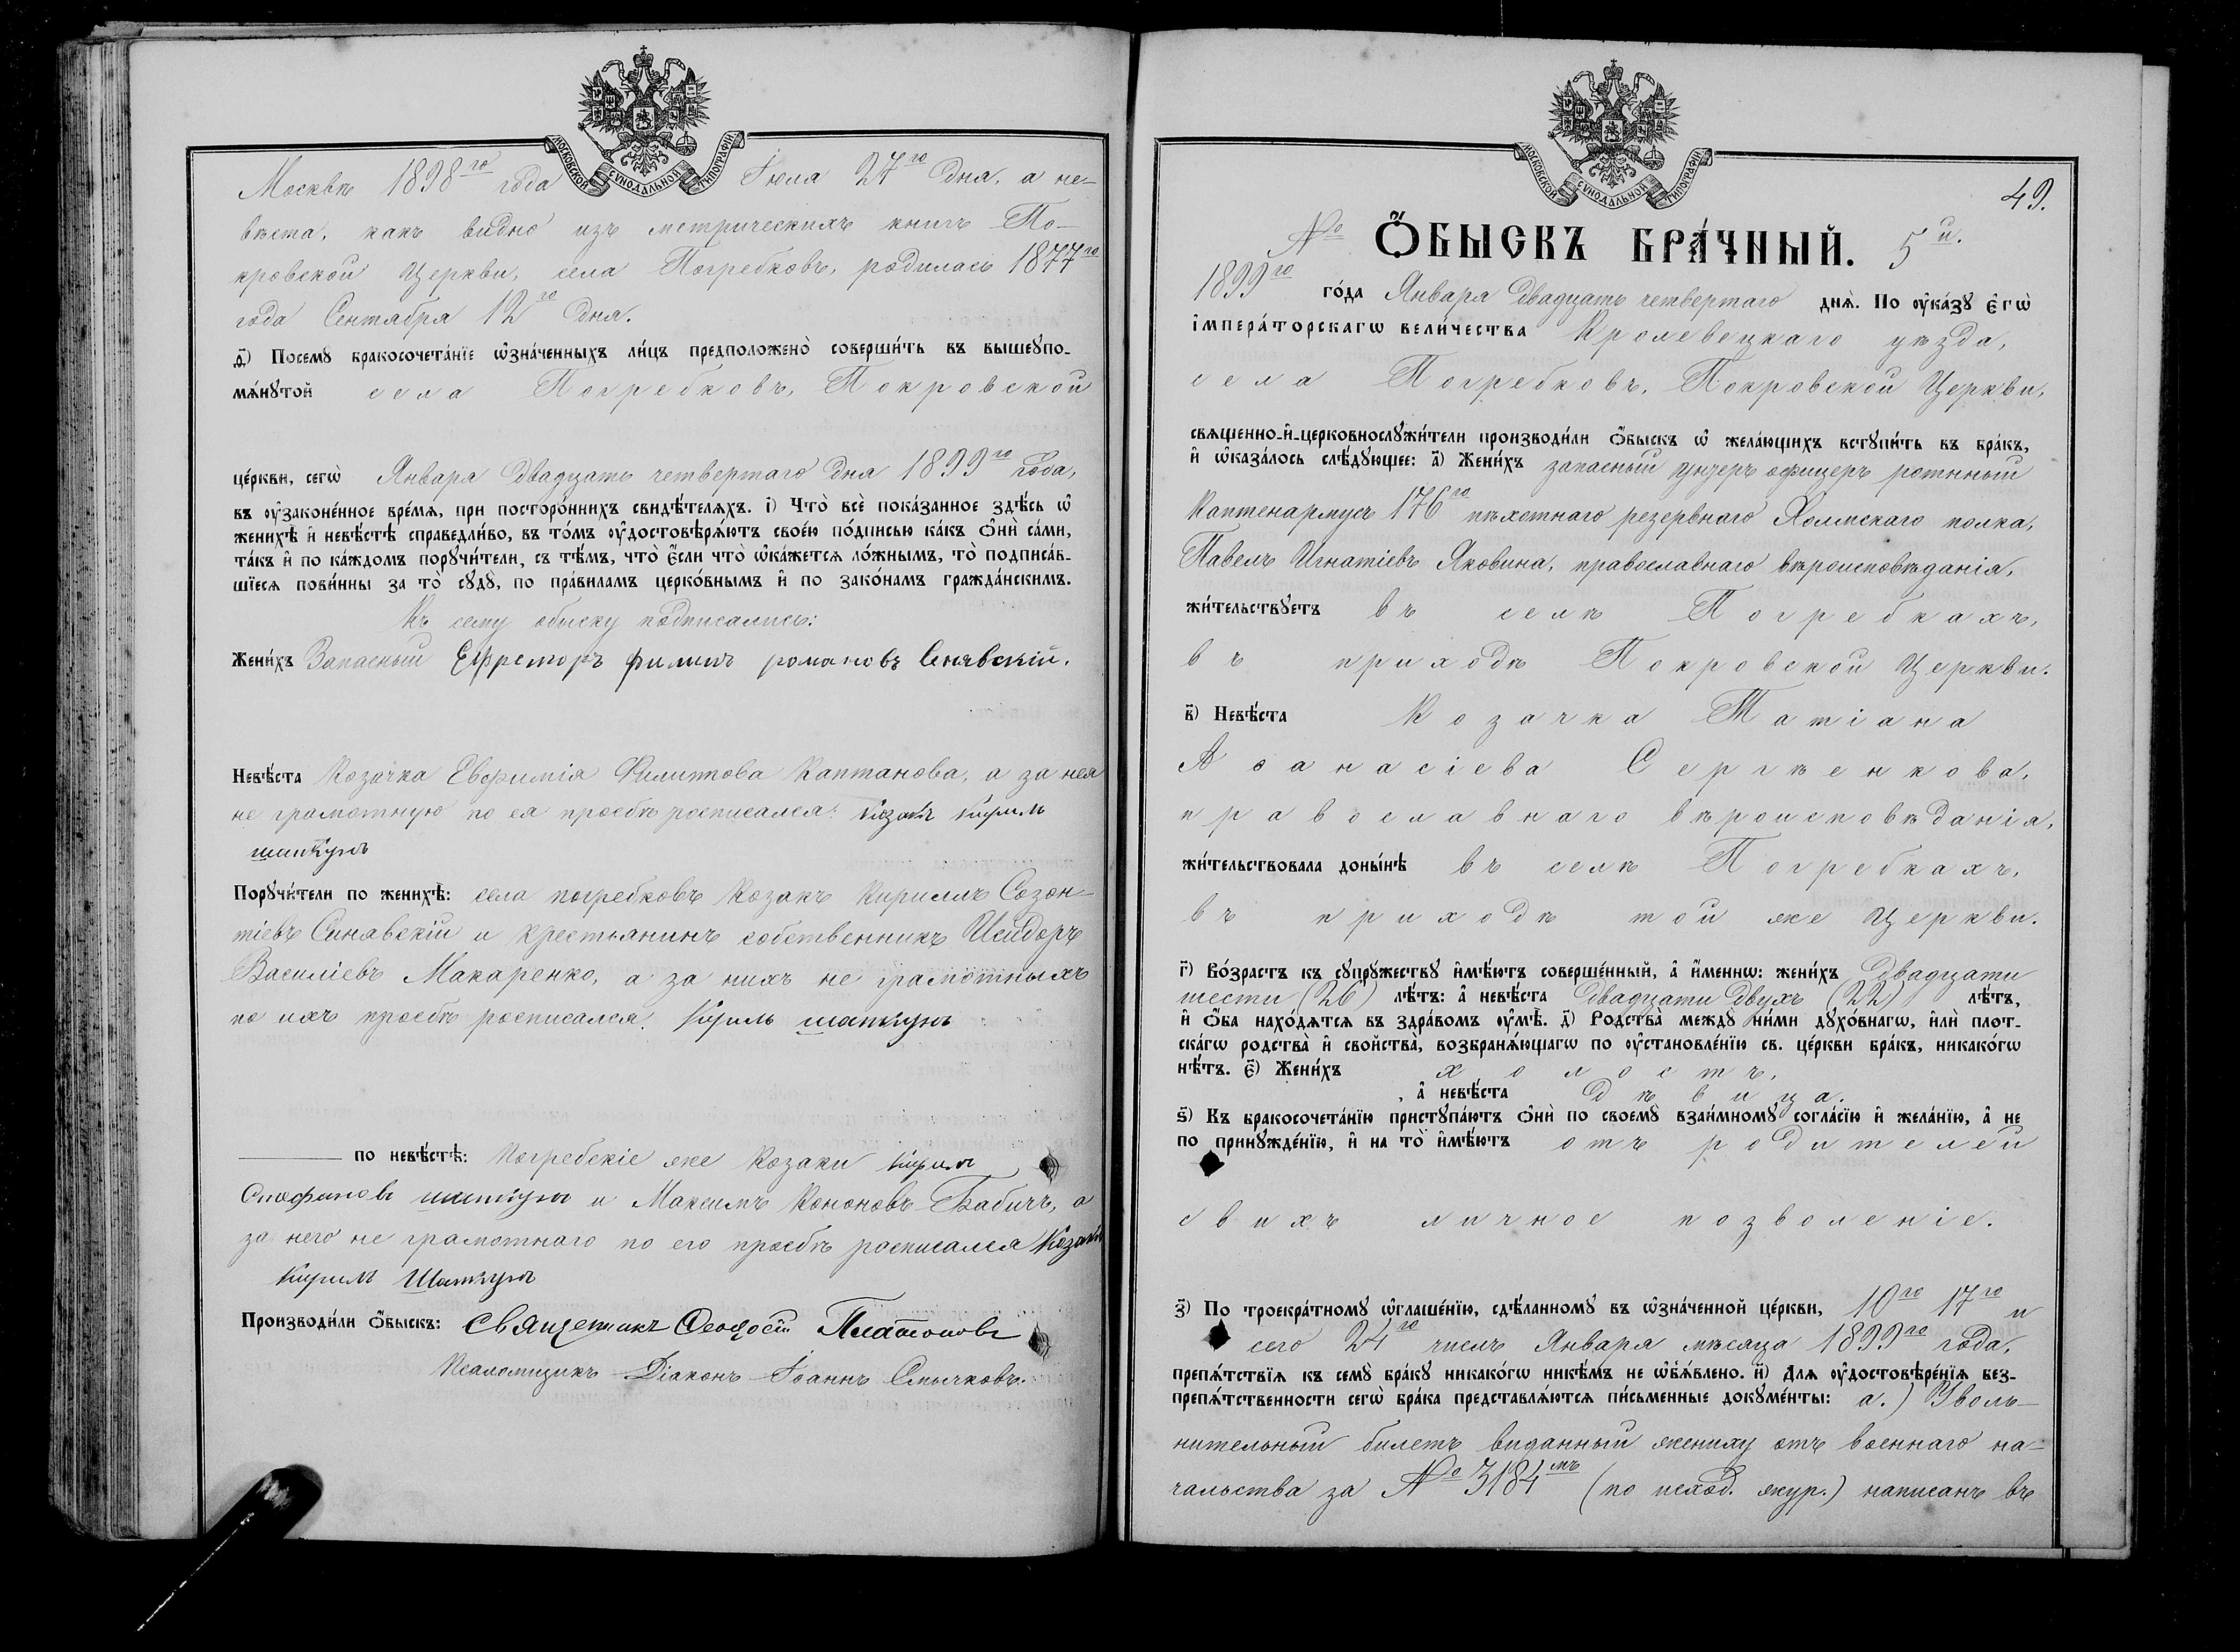 МОСКОВСКОЙ СУНОДАЛЬНОЙ ТИПОГРАФІИ
Москвѣ 1898го года Іюля 27го дня, а не-
вѣста, какъ видно изъ метрическихъ книгъ По-
кровской Церкви, села Погребковъ, родилась 1877го
года Сентября 12го дня.
ѳ҃) Посемꙋ бракосочета́нїе ѡ҆зна́ченныхъ ли́цъ предположено̀ соверши́ть въ вышеꙋпо-
мѧ́нꙋтой села Погребковъ, Покровской
це́ркви, сегѡ̀ Января двадцать четвертаго дня 1899го года,
въ ᲂу҆законе́нное вре́мѧ, при посторо́ннихъ свидѣ́телѧхъ. і҃) Что̀ всѐ пока́занное здѣ́сь ѡ҆
женихѣ̀ и҆ невѣ́стѣ справедли́во, въ то́мъ ᲂу҆достовѣрѧ́ютъ свое́ю по́дписью ка́къ ѻ҆нѝ са́ми,
та́къ и҆ по ка́ждомъ порꙋчи́тели, съ тѣ́мъ, что̀ є҆́сли что̀ ѡ҆ка́жетсѧ ло́жнымъ, то̀ подписа́в-
шїесѧ пови́нны за то̀ сꙋдꙋ̀, по пра́виламъ церко́внымъ и҆ по зако́намъ гражда́нскимъ.
Къ сему обыску подписались:
Жени́хъ Запасный Ефреторъ филипъ романовъ Сенявскій.
Невѣ́ста Козачка Евфимія Филиппова Каптанова, а за нея
не грамотную по ея просьбѣ росписался: козакъ Кирилъ
шапкунъ
Порꙋчи́тели по женихѣ̀: села погребковъ Козакъ Кириллъ Созон-
тіевъ Синявскій и крестьянинъ собственникъ Исидоръ
Василіевъ Макаренко, а за нихъ не грамотныхъ
по ихъ просьбѣ росписался. Кирилъ шапкунъ
по невѣ́стѣ: Погребскіе же Козаки Кирилъ
шапкунъ и Максимъ Кононовъ Бабичъ, а
за него не грамотнаго по его просьбѣ росписался Козакъ
Кирилъ Шапкунъ
Производи́ли ѻ҆́быскъ: Священникъ Феодосій Платоновъ
Псаломщикъ Діаконъ Іоаннъ Смычковъ.
МОСКОВСКОЙ СУНОДАЛЬНОЙ ТИПОГРАФІИ
49.
№ Ѻ҆́БЫСКЪ БРА́ЧНЫЙ. 5й.
1899го го́да Января двадцать четвертаго днѧ̀. По ᲂу҆ка́зꙋ є҆гѡ̀
і҆мпера́торскагѡ вели́чества Кролевецкаго уѣзда,
села Погребковъ, Покровской Церкви,
свѧщенно-и҆-церковнослꙋжи́тели производи́ли ѻ҆́быскъ ѡ҆ жела́ющихъ встꙋпи́ть въ бра́къ,
и҆ ѡ҆каза́лось слѣ́дꙋющее: а҃) Жени́хъ запасный унтеръ офицеръ ротнный
Каптенармусъ 176го пѣхотнаго резервнаго Холмскаго полка,
Павелъ Игнатіевъ Яковина, православнаго вѣроисповѣданія,
жи́тельствꙋетъ въ селѣ Погребкахъ,
въ приходѣ Покровской Церкви.
в҃) Невѣ́ста Козачка Татіана
Аѳанасіева Сергѣенкова,
православнаго вѣроисповѣданія,
жи́тельствовала доны́нѣ въ селѣ Погребкахъ,
въ приходѣ той же Церкви.
г҃) Во́зрастъ къ сꙋпрꙋ́жествꙋ и҆мѣ́ютъ соверше́нный, а҆ и҆́менно: жени́хъ двадцати
шести (26) лѣ́тъ: а҆ невѣ́ста двадцати двухъ (22) лѣ́тъ,
и҆ ѻ҆́ба нахо́дѧтсѧ въ здра́вомъ ᲂу҆мѣ̀. д҃) Родства̀ междꙋ̀ ни́ми дꙋхо́внагѡ, и҆лѝ пло́т-
ска́гѡ родства̀ и҆ сво́йства̀, возбранѧ́ющагѡ по ᲂу҆становле́нїю св. це́ркви бра́къ, никако́гѡ
нѣ́тъ. є҃) Жени́хъ холостъ,
, а҆ невѣ́ста дѣвица.
ѕ҃) Къ бракосочета́нїю пристꙋпа́ютъ ѻ҆нѝ по своемꙋ̀ взаи́мномꙋ согла́сїю и҆ жела́нїю, а҆ не
по принꙋжде́нїю, и҆ на то̀ и҆мѣ́ютъ отъ родителей
свихъ личное позволеніе.
з҃) По троекра́тномꙋ ѡ҆глаше́нїю, сдѣ́ланномꙋ въ ѡ҆зна́ченной це́ркви, 10го 17го и
сего 24го числъ Января мѣсяца 1899го года,
препѧ́тствїѧ къ семꙋ̀ бра́кꙋ никако́гѡ никѣ́мъ не ѡ҆б̾ѧ́влено. и҃) Длѧ ᲂу҆достовѣре́нїѧ без-
препѧ́тственности сегѡ̀ бра́ка представлѧ́ютсѧ пи́сьменные докꙋме́нты: а.) Уволь-
нительный билетъ виданный жениху отъ военнаго на-
чальства за № 3184мъ (по исход. жур.) написанъ въ